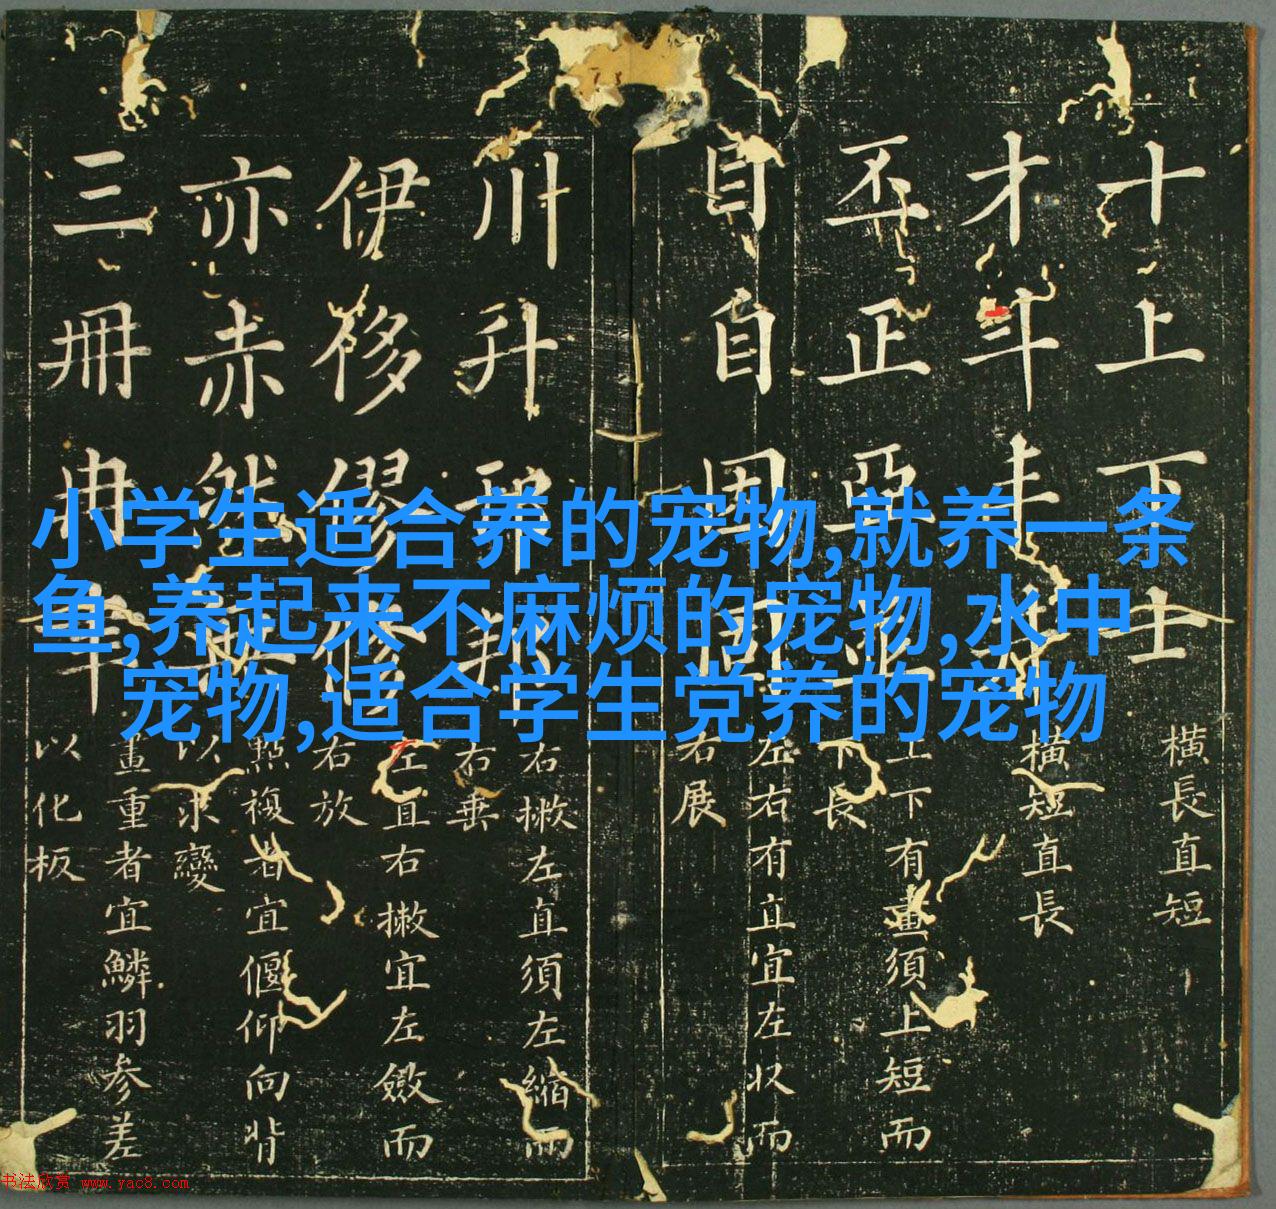 小学生适合养的宠物,就养一条
鱼,养起来不麻烦的宠物,水中
宠物,适合学生党养的宠物
十上下士
横長直短
才斗丰
横短直長
丕正亞
上下有畫須上短而
下長
目自因固
左右有直宜左収而
右展
川升邪邦
右撇左直須左縮而
右垂
伊侈僇修
左直右撇宜左斂而
右放
亦赤然無
點複者宜偃仰向背
以求變
三冊冉
畫重者宜鱗羽参差
以化板
书法欣赏 www.yac8.com